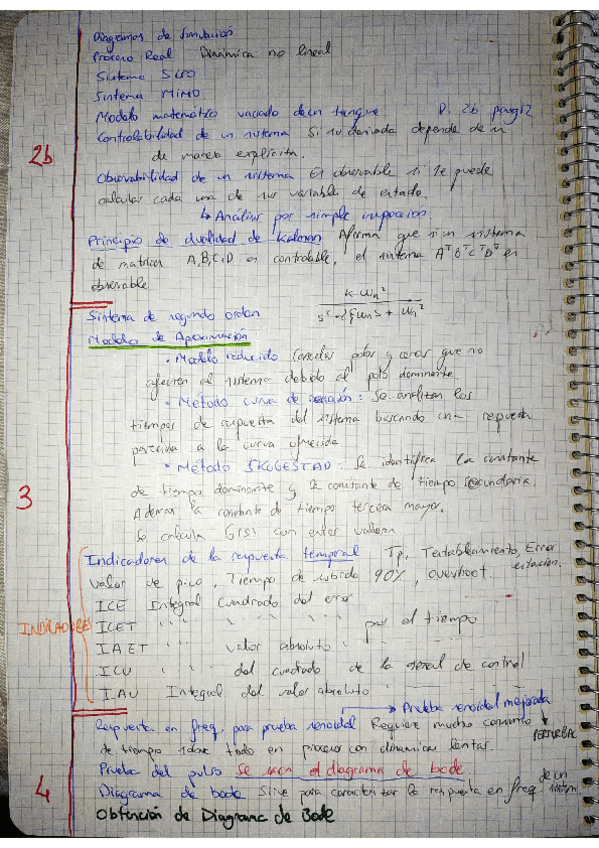 Diagramas de funciones
Proceso Real Dinámica no lineal
Sistema SISO
Sistema MIMO
Modelo matemático vaciado de un tanque D. 2b pag 12
Controlabilidad de un sistema Si su derivada depende de u
de manera explícita.
2b
Observabilidad de un sistema Es observable si se puede
calcular cada una de sus variable de estado
↳ Análisis por simple inspección
Principio de dualidad de Kalman Afirma que si un sistema
de matrices A,B,C,D es controlable, el sistema Aᵀ Bᵀ Cᵀ Dᵀ es
observable
Sistema de segundo orden K·ωn² / s² + 2ξωns + ωn²
Modelos de Aproximación
• Modelo reducido Cancelar polos y ceros que no
afectan al sistema debido al polo dominante
• Método curva de reacción: Se analizan los
tiempos de respuesta del sistema buscando una respuesta
parecida a la curva ofrecida
• Método SKOGESTAD: Se identifica la constante
3
de tiempo dominante y la constante de tiempo secundaria
Ademas la constante de tiempo tercera mayor.
Se calcula G(s) con estos valores
Indicadores de la respuesta temporal Tp, Testablecimiento, Error
estacion.
valor de pico, Tiempo de subida 90%, overshoot.
ICE Integral Cuadrado del error
INDICADORES
ICET '' '' '' '' '' por el tiempo
IAET '' valor absoluto ''
ICU '' del cuadrado de la señal de control
IAU Integral del valor absoluto ''
→ Prueba senoidal mejorada
Respuesta en freq. para prueba senoidal Requiere mucho consumo
PERTURBAC
de tiempo sobre todo en procesos con dinamicas lentas.
Prueba del pulso Se saca el diagrama de bode
4
Diagrama de bode Sirve para caracterizar la respuesta en freq. de un sistem
Obtención de Diagrama de Bode